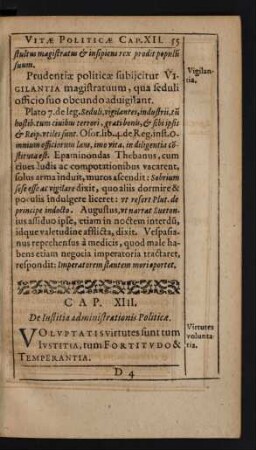 VITÆ POLITICÆ CAP. XII. 55
stultus magistratus & insipiens rex prodit populũ
suum.
Prudentiæ politicæ subijcitur VI-
GILANTIA magistratuum, qua seduli
officio suo obeundo aduigilant.
Vigilan-
tia.
Plato 7. de leg. Seduli, vigilantes, industrii, tũ
hostib. tum ciuibus terrori, grati bonis, & sibi ipsis
& Reip. vtiles sunt. Osor. lib. 4. de Reg. inst. O-
mnium officiorum laus, imo vita, in diligentia cõ-
stituta est. Epaminondas Thebanus, cum
ciues ludis ac compotationibus vacarent,
solus arma induit, muros ascendit: Sobrium
sese esse ac vigilare dixit, quo aliis dormire &
poculis indulgere liceret: vt refert Plut. de
principe indocto. Augustus, vt narrat Sueton.
ius assiduo ipse, etiam in noctem interdũ,
idque valetudine afflicta, dixit. Vespasia-
nus reprehensus à medicis, quod male ha-
bens etiam negocia imperatoria tractaret,
respondit: Imperatorem stantem mori oportet.
CAP. XIII.
De Iustitia administrationis Politicæ.
VOLVPTATIS virtutes sunt tum
IVSTITIA, tum FORTITVDO &
TEMPERANTIA.
Virtutes
volunta-
tis.
D 4